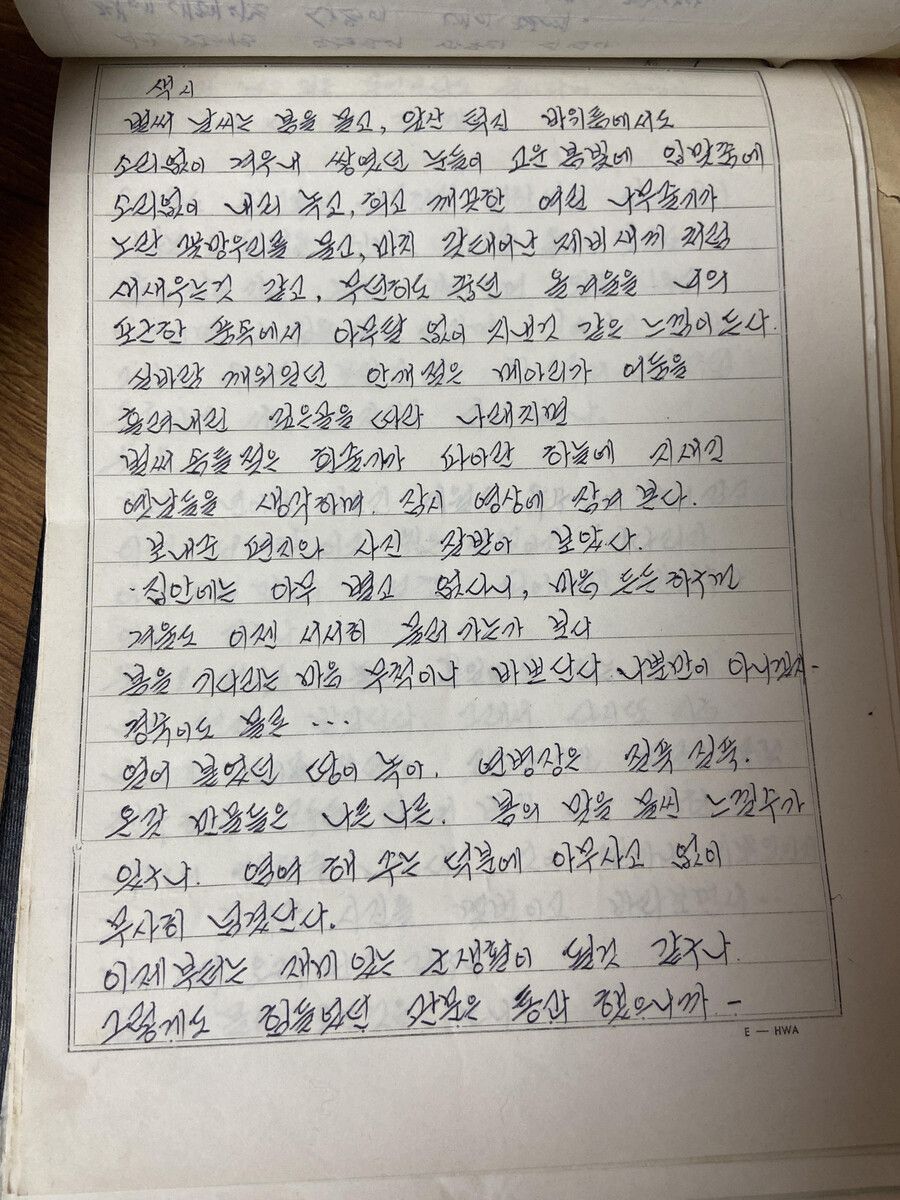 색시
벌써 날씨는 봄을 몰고, 앞산 턱진 바위틈에서도
소리없이 겨우내 쌓였던 눈들이 고운 봄빛에 입맞춤에
소리없이 내려 녹고, 희고 깨끗한 여린 나무줄기가
노란 꽃망우리를 물고, 마치 갓태어난 제비새끼 처럼
새새우는것 같고, 무던히도 춥던 올겨울을 너의
포근한 품속에서 아무탈 없이 지낸것 같은 느낌이 든다.
실바람 깨워있던 안개젖은 메아리가 어둠을
흘려내린 검은골을 따라 나래지면
벌써 동틀젖은 휘슬가가 파아란 하늘에 지새긴
옛날들을 생각하며. 잠시 영상에 잠겨 본다.
보내준 편지와 사진 잘받아 보았다.
집안에는 아무 별고 없다니, 마음 든든하구먼
겨울도 이젠 서서히 물러 가는가 보다
봄을 기다리는 마음 무척이나 바쁘단다 나뿐만이 아니겠지-
경숙이도 물론 ...
얼어 붙었던 땅이 녹아. 연병장은 질퍽 질퍽.
온갖 만물들은 나른 나른. 봄의 맛을 물씬 느낄수가
있구나. 염려 해 주는 덕분에 아무사고 없이
무사히 넘겼단다.
이제부터는 재미 있는 군생활이 될것 같구나
그렇게도 힘들었던 관문은 통과 했으니까 -
E — HWA